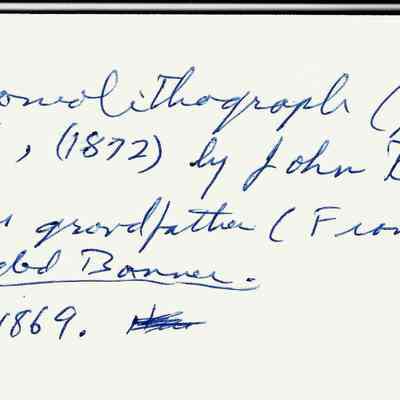 omolithograph (
, (1872) by John
grandfather (Fran
gled Banner.
1869.